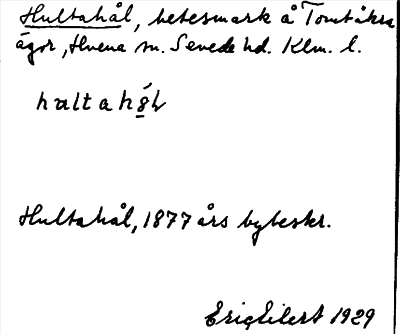 Hultahål, betesmark å Tomtåkra
ägor, Hvena sn. Sevede hd. Klm. l.
Hultahål, 1877 års bybeskr.
Eric Eilert 1929